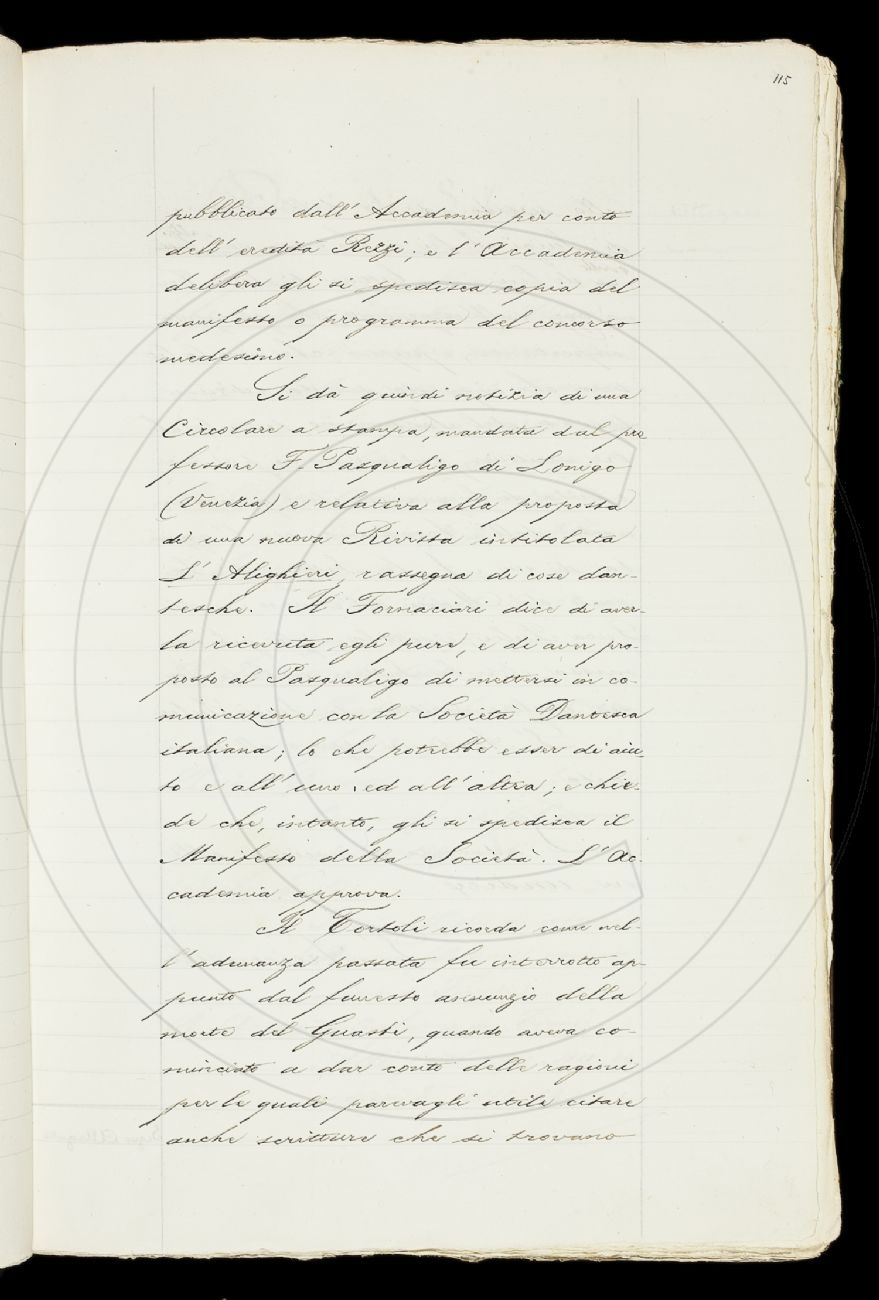 115
pubblicato dall' Accademia per conto
dell' eredità Rezzi; e l' Accademia
delibera gli si spedisca copia del
manifesto o programma del concorso
medesimo.
Si dà quindi notizia di una
Circolare a stampa, mandata dal pro
fessore F. Pasqualigo di Lonigo
(Venezia) e relativa alla proposta
di una nuova Rivista intitolata
L' Alighieri, rassegna di cose dan-
tesche. Il Fornaciari dice di aver-
la ricevuta egli pure, e di aver pro-
posto al Pasqualigo di mettersi in co-
municazione con la Società Dantesca
italiana; lo che potrebbe esser di aiu-
to e all' uno ed all' altra; e chie-
de che, intanto, gli si spedisca il
Manifesto della Società. L' Ac-
cademia approva.
Il Tortoli ricorda come nel-
l' adunanza passata fu interrotto ap-
punto dal funesto annunzio della
morte del Guasti, quando aveva co-
minciato a dar conto delle ragioni
per le quali parevagli utile citare
anche scritture che si trovano